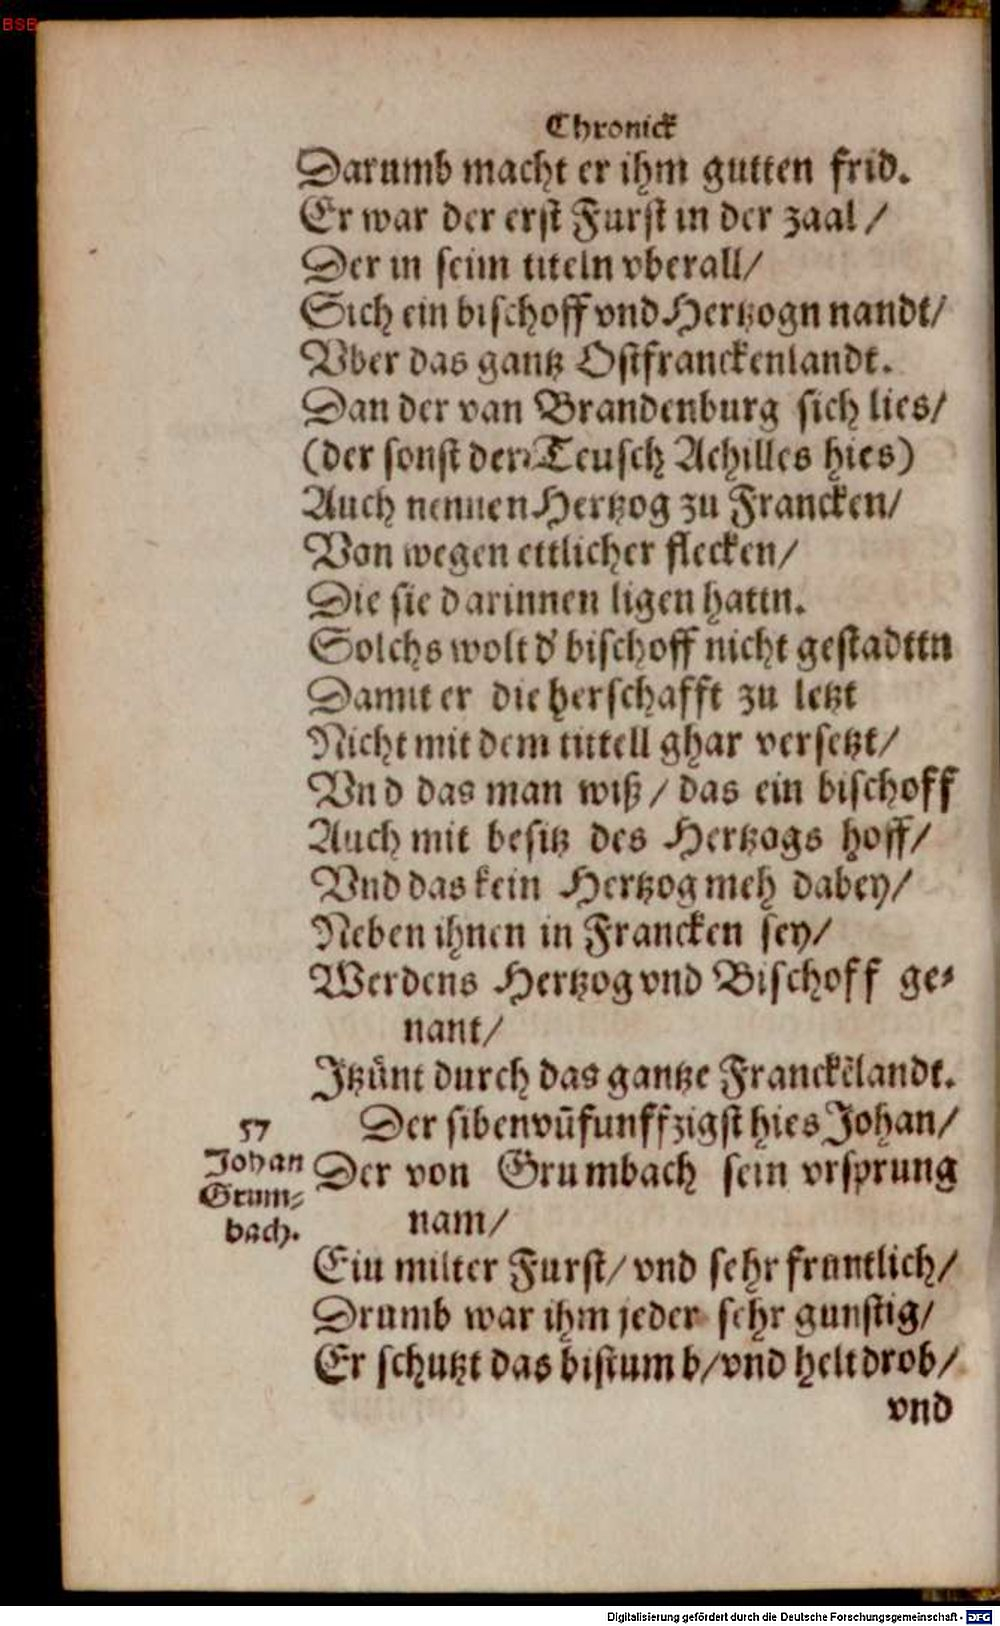 BSB
Chronick
Darumb macht er ihm gutten frid.
Er war der erst Furst in der zaal /
Der in seim titeln vberall/
Sich ein bischoff vnd Hertzogn nandt/
Vber das gantz Ostfranckenlandt.
Dan der van Brandenburg sich lies/
(der sonst der Teusch Achilles hies)
Auch nennen Hertzog zu Francken/
Von wegen ettlicher flecken/
Die sie darinnen ligen hattn.
Solchs wolt d' bischoff nicht gestadttn
Damit er die herschafft zu letzt
Nicht mit dem tittell ghar versetzt/
Vnd das man wiß / das ein bischoff
Auch mit besitz des Hertzogs hoff/
Vnd das kein Hertzog meh dabey/
Neben ihnen in Francken sey/
Werdens Hertzog vnd Bischoff ge⸗
nant/
Jtzůnt durch das gantze Franckẽlandt.
57
Johan
Grum⸗
bach.
Der sibenvũfunffzigst hies Johan/
Der von Grumbach sein vrsprung
nam/
Ein milter Furst/ vnd sehr fruntlich/
Drumb war ihm jeder sehr gunstig/
Er schutzt das bistumb/vnd helt drob/
vnd
Digitalisierung gefördert durch die Deutsche Forschungsgemeinschaft - DFG